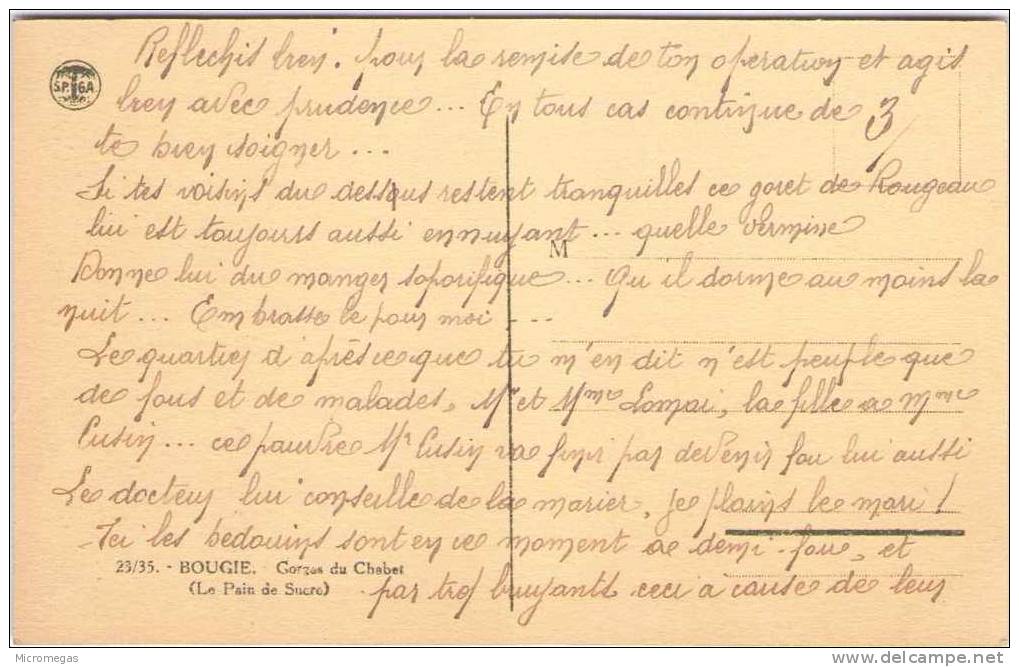 Reflechis bien. pour la remise de ton operation et agis
bien avec prudence... En tous cas continue de
3/
te bien soigner...
S.P.G.A.
Si tes voisins du dessous restent tranquilles ce goret de Rougeau
lui est toujours aussi ennuyant... quelle vermine
M
Donne lui du manger soporifique... Qu il dorme au moins la
nuit... Embrasse le pour moi...
Le quartier d'après ce que tu m'en dit n'est peuplé que
de fous et de malades, Mr et Mme Lomai, la fille a Mme
Cusin... ce pauvre Mr Cusin va finir par devenir fou lui aussi
Le docteur lui conseille de la marier, je plains le mari!
Ici les bédouins sont en ce moment a demi-fou, et
23/35. - BOUGIE. Gorges du Chabet
(Le Pain de Sucre)
par trop bruyants ceci a cause de leur
Micromegas
delcampe.net